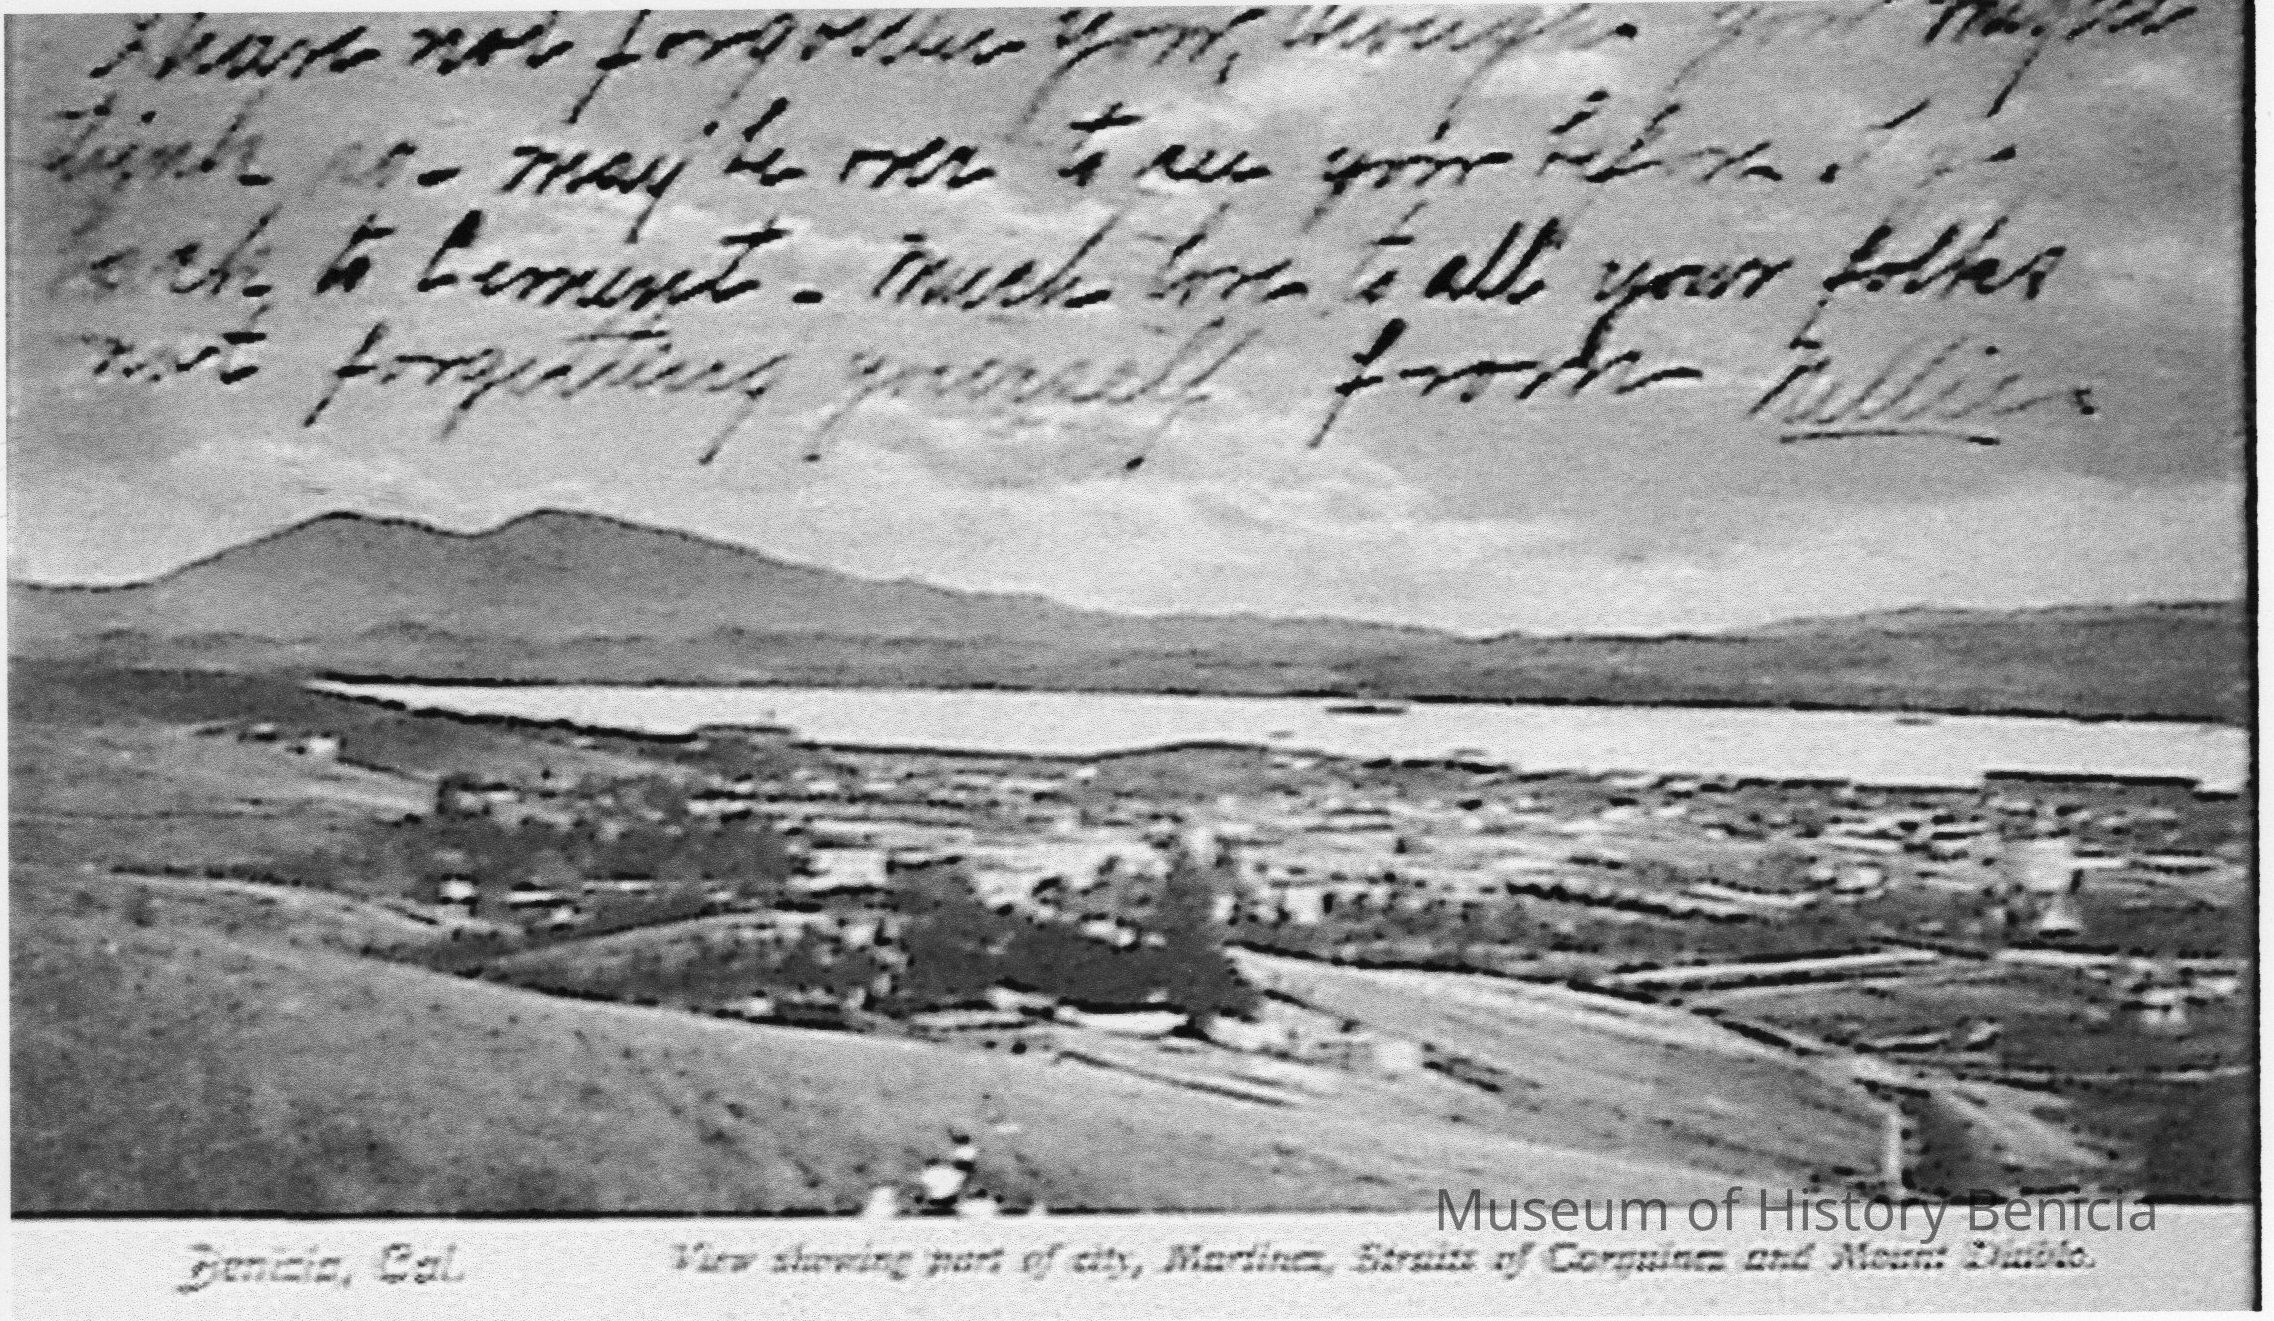 have not forgotten you, though you might
think so - may be over to see you before I go
back to        - much love to all your folks
not forgetting yourself from Nellie.
Museum of History Benicia
Benicia, Cal. View showing part of city, Martinez, Straits of Carquinez and Mount Diablo.